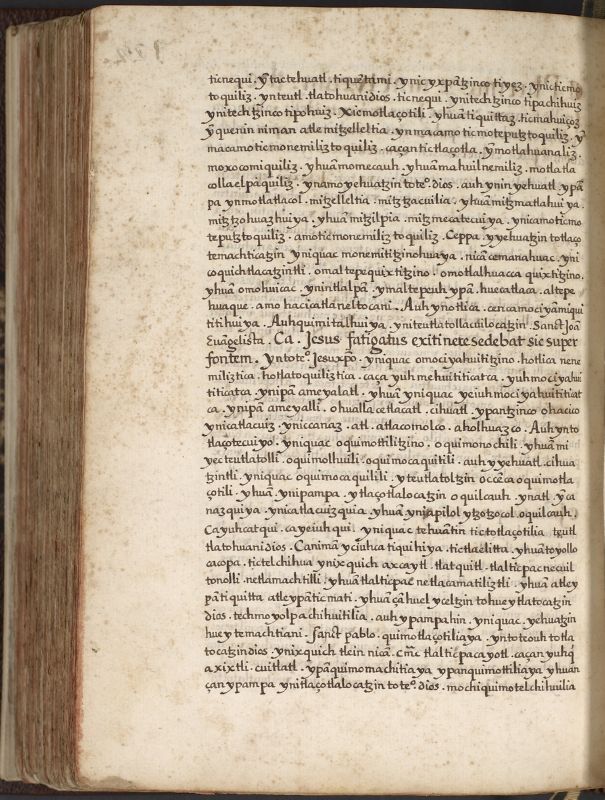 ticnequi. ỹ tactehuatl. tiquẽtami. ynic yxpãtzinco tiyez. ynic ticmo
toquiliz. ynteutl. tlatohuani dios. ticnequi. ynitechtzinco tipachihuiz
ynitechtzinco tipohuiz. Xicmotlaçotili. yhuã tiquittaz. ticmahuiçoz
ỹ quenin niman atle mitzelleltia. yn macamo ticmoteputztoquiliz. ỹ
macamo ticmonemiliztoquiliz. caçan tictlaçotla. ỹmotlahuanaliz.
moxocomiquiliz. yhuã momecauh. yhuã mahuilnemiliz. motlatla
collaelpaquiliz. ynamo yehuatzin toteº. dios. auh ynin yehuatl ypã
pa ynmotlatlacol. mitzelleltia. mitztzacuilia. yhuã mitzmatlahuiya.
mitztzohuazhuiya. yhuã mitzilpia. mitzmecatecuiya. ynicamo ticmo
teputztoquiliz. amo ticmonemiliztoquiliz. Ceppa. yyehuatzin totlaço
temachticatzin yniquac monemititzinohuaya. nicã cemanahuac. yni
coquichtlacatzintli. omaltepequixtitzino. omotlalhuacca quixtitzino.
yhuã omohuicac. ynintlalpã. ymaltepeuh ypã. huecatlaca. altepe
huaque. amo hacicatlaneltocani. Auh ynotlica. cencamociyamiqui
titihuiya. Auh quimitalhuiya. yniteutlatollacuilocatzin. Sanct Joã
Euãgelista. Ca. Jesus fatigatus ex itinere sedebat sic super
fontem. yntoteº. Jesuxpõ. yniquac omociyahuititzino. hotlica nene
miliztica. hotlatoquiliztica. caça yuhmehuititicatca. yuhmociyahui
titicatca. ynipã ameyalatl. yhuã yniquac yeiuhmociyahuititicat
ca. ynipã ameyalli. ohualla cetlacatl. cihuatl. ypantzinco ohacico
ynicatlacuiz. yniccanaz. atl. atlacomolco. aholhuazco. Auh ynto
tlaçotecuiyo. yniquac oquimottilitzino. oquimonochili. yhuã mi
yec teutlatolli. oquimolhuili. oquimocaquitili. auh yyehuatl. cihua
tzintli. yniquac oquimocaquilili. yteutlatoltzin occẽca oquimotla
çotili. yhuã. ynipampa. ytlaçotlalocatzin oquilcauh. ynatl. ỹca
nazquiya. ynicatlacuizquia. yhuã yniapilol ytzotzocol. oquilcauh.
Ca yuhcatqui. ca yeiuhqui. yniquac tehuãtin tictotlaçotilia teutl
tlatohuani dios. Canimã yciuhca tiquihiya. tictlaelitta. yhuã toyollo
cacopa. tictelchihua ynixquich axcaytl. tlatquitl. tlalticpac necuil
tonolli. netlamachtilli. yhuã tlalticpac netlacamatiliztli. yhuã atley
pãtiquitta atleypãticmati. yhuã cã huel yceltzin tohueytlatocatzin
dios. techmoyolpachihuitilia. auh ypampa hin. yniquac yehuatzin
huey temachtiani. sanct pablo. quimotlaçotiliaya. ynto teouh totla
tocatzin dios. ynixquich tlein nicã. cm̃c tlalticpacayotl. caçan yuhq̃
axixtli. cuitlatl. ypã quimomachitiaya ypan quimottiliaya yhuan
çan ypampa ynitlaçotlalocatzin toteº. dios. mochi quimotelchihuilia